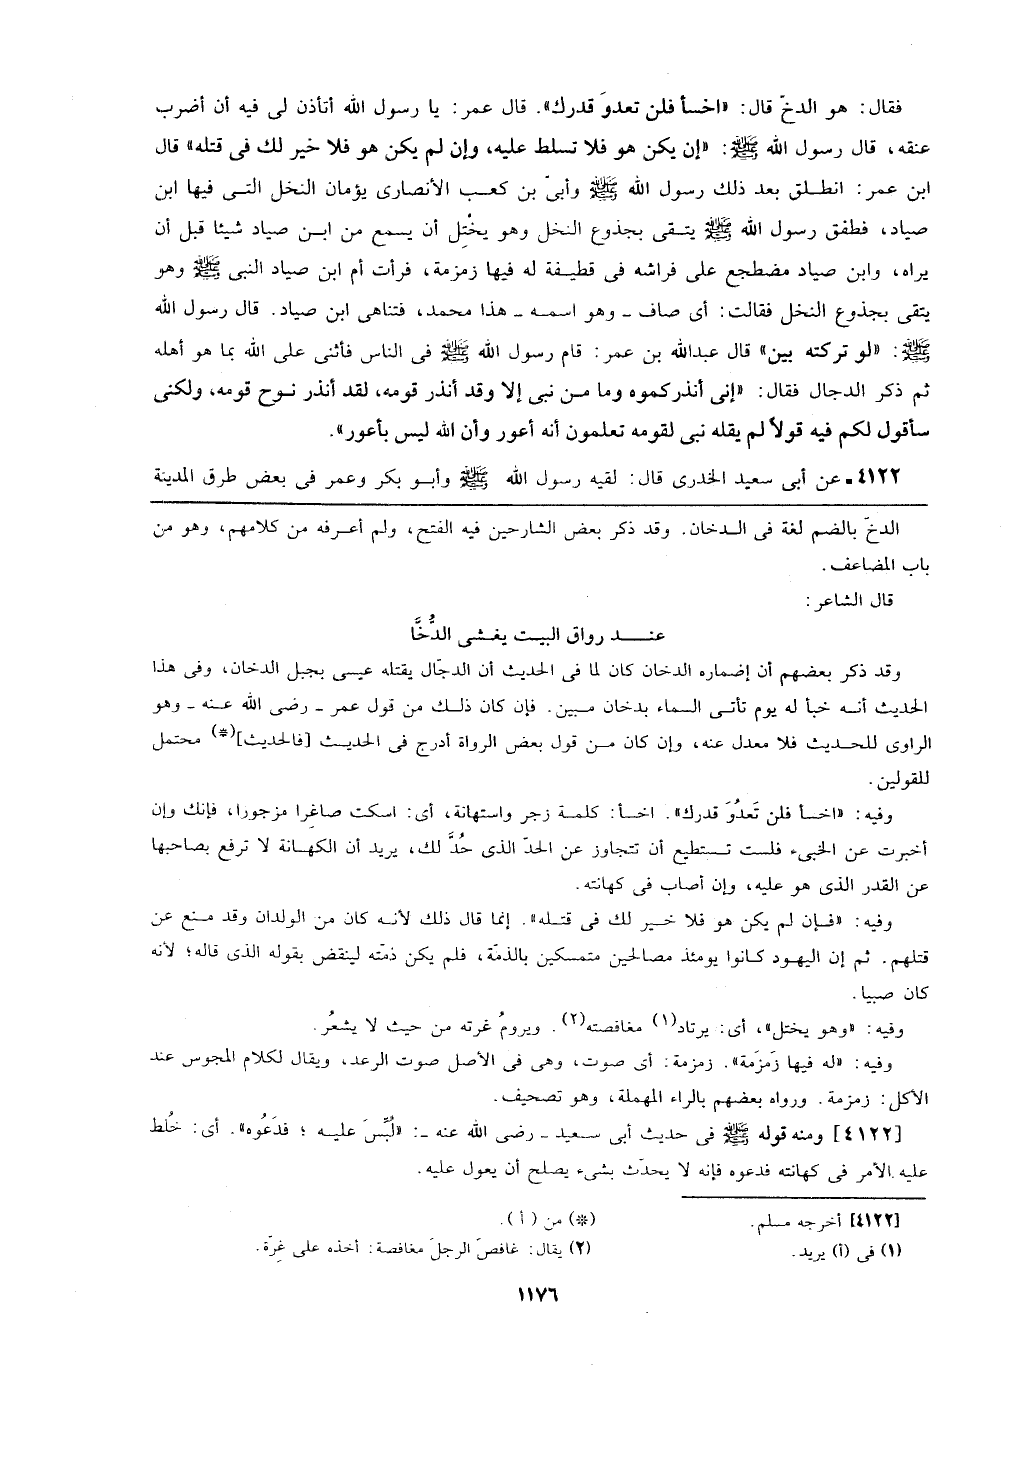 فقال: هو الدخّ قال: «اخسأ فلن تعدوَ قدرك». قال عمر: يا رسول الله أتأذن لى فيه أن أضرب
عنقه، قال رسول الله ﷺ: «إن يكن هو فلا تسلط عليه، وإن لم يكن هو فلا خير لك فى قتله» قال
ابن عمر: انطلق بعد ذلك رسول الله ﷺ وأبىّ بن كعب الأنصارى يؤمان النخل التى فيها ابن
صياد، فطفق رسول الله ﷺ يتقى بجذوع النخل وهو يخْتِل أن يسمع من ابن صياد شيئا قبل أن
يراه، وابن صياد مضطجع على فراشه فى قطيفة له فيها زمزمة، فرأت أم ابن صياد النبى ﷺ وهو
يتقى بجذوع النخل فقالت: أى صاف ـ وهو اسمه ـ هذا محمد، فتناهى ابن صياد. قال رسول الله
ﷺ: «لو تركته بين» قال عبدالله بن عمر: قام رسول الله ﷺ فى الناس فأثنى على الله بما هو أهله
ثم ذكر الدجال فقال: «إنى أنذركموه وما من نبى إلا وقد أنذر قومه، لقد أنذر نوح قومه، ولكنى
سأقول لكم فيه قولاً لم يقله نبى لقومه تعلمون أنه أعور وأن الله ليس بأعور».
٤١٢٢ـ عن أبى سعيد الخدرى قال: لقيه رسول الله ﷺ وأبو بكر وعمر فى بعض طرق المدينة
الدخّ بالضم لغة فى الدخان. وقد ذكر بعض الشارحين فيه الفتح، ولم أعرفه من كلامهم، وهو من
باب المضاعف.
قال الشاعر:
عند رواق البيت يغشى الدُّخَّا
وقد ذكر بعضهم أن إضماره الدخان كان لما فى الحديث أن الدجّال يقتله عيسى بجبل الدخان، وفى هذا
الحديث أنه خبأ له يوم تأتى السماء بدخان مبين. فإن كان ذلك من قول عمر ـ رضى الله عنه ـ وهو
الراوى للحديث فلا معدل عنه، وإن كان من قول بعض الرواة أدرج فى الحديث [فالحديث](*) محتمل
للقولين.
وفيه: «اخسأ فلن تَعدُوَ قدرك». اخسأ: كلمة زجر واستهانة، أى: اسكت صاغرا مزجورا، فإنك وإن
أخبرت عن الخبىء فلست تستطيع أن تتجاوز عن الحدّ الذى حُدَّ لك، يريد أن الكهانة لا ترفع بصاحبها
عن القدر الذى هو عليه، وإن أصاب فى كهانته.
وفيه: «فإن لم يكن هو فلا خير لك فى قتله». إنما قال ذلك لأنه كان من الولدان وقد منع عن
قتلهم. ثم إن اليهود كانوا يومئذ مصالحين متمسكين بالذمّة، فلم يكن ذمّته لينقض بقوله الذى قاله؛ لأنه
كان صبيا.
وفيه: «وهو يختل»، أى: يرتاد(١) مغافصته(٢). ويرومُ غرته من حيث لا يشعُر.
وفيه: «له فيها زَمزَمة». زمزمة: أى صوت، وهى فى الأصل صوت الرعد، ويقال لكلام المجوس عند
الأكل: زمزمة. ورواه بعضهم بالراء المهملة، وهو تصحيف.
[٤١٢٢] ومنه قوله ﷺ فى حديث أبى سعيد ـ رضى الله عنه ـ: «لُبِّسَ عليه ؛ فدَعُوه». أى: خُلط
عليه الأمر فى كهانته فدعوه فإنه لا يحدّث بشىء يصلح أن يعول عليه.
[٤١٢٢] أخرجه مسلم. (*) من (أ).
(١) فى (أ) يريد. (٢) يقال: غافصَ الرجلَ مغافصة: أخذه على غِرّة.
١١٧٦